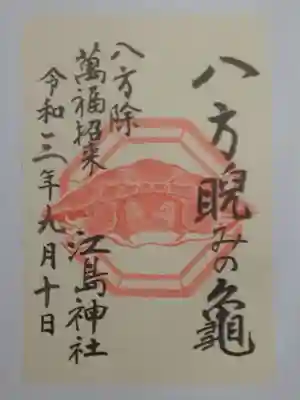 八方睨みの亀
八方除
萬福招来
江島神社
令和三年九月十日